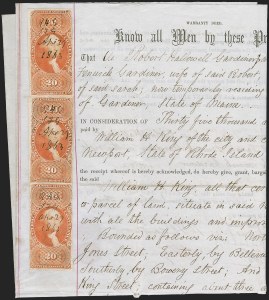 WARRANTY DEED.
Know all Men by these Pr
That We Robert Hallowell Gardiner
Gardiner, wife of said Robert,
of said Sarah; now temporarily residing
of Gardiner, State of Maine
IN CONSIDERATION OF Thirty five thousand
paid by
William H King of the city and c
Newport, State of Rhode Island
the receipt whereof is hereby acknowledged, do hereby give, grant, bargain
the said
William H. King, all that cer
parcel of land, situate in said
with all the buildings and impro
Bounded as follows viz: Nort
Jones Street; Easterly by Bellevu
Southerly by Bowery Street; And
King Street, containing about three a
20
20
20